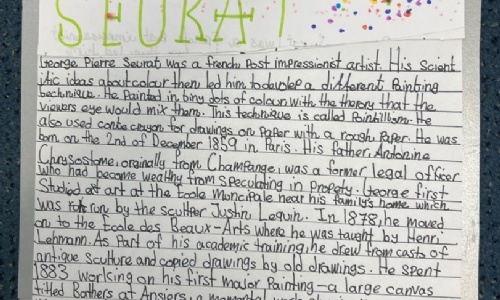 SEURAT
George Pierre Seurat was a french Post impressionist artist. His Scient
ific ideas about colour then led him to develop a different Painting
technique. He Painted in tiny dots of colour with the theory that the
viewers eye would mix them. This technique is called Pointillism. He
also used conte crayon for drawings on Paper with a rough Paper. He was
born on the 2nd of December 1859 in Paris. His father Antonine
Chrysostome, orginally from Champange, was a former legal officer
who had become wealthy from speculating in Propety. George first
Studied art at the Ecole Muncipale near his family's home which
was run by the sculpter Justin Lequin. In 1878, he moved
on to the Ecole des Beaux-Arts where he was taught by Henri
Lehmann. As Part of his academic training, he drew from casts of
antique sculture and copied drawings by old drawings. He spent
1883 working on his first major Painting - a large canvas
titled Bathers at Ansiors, a